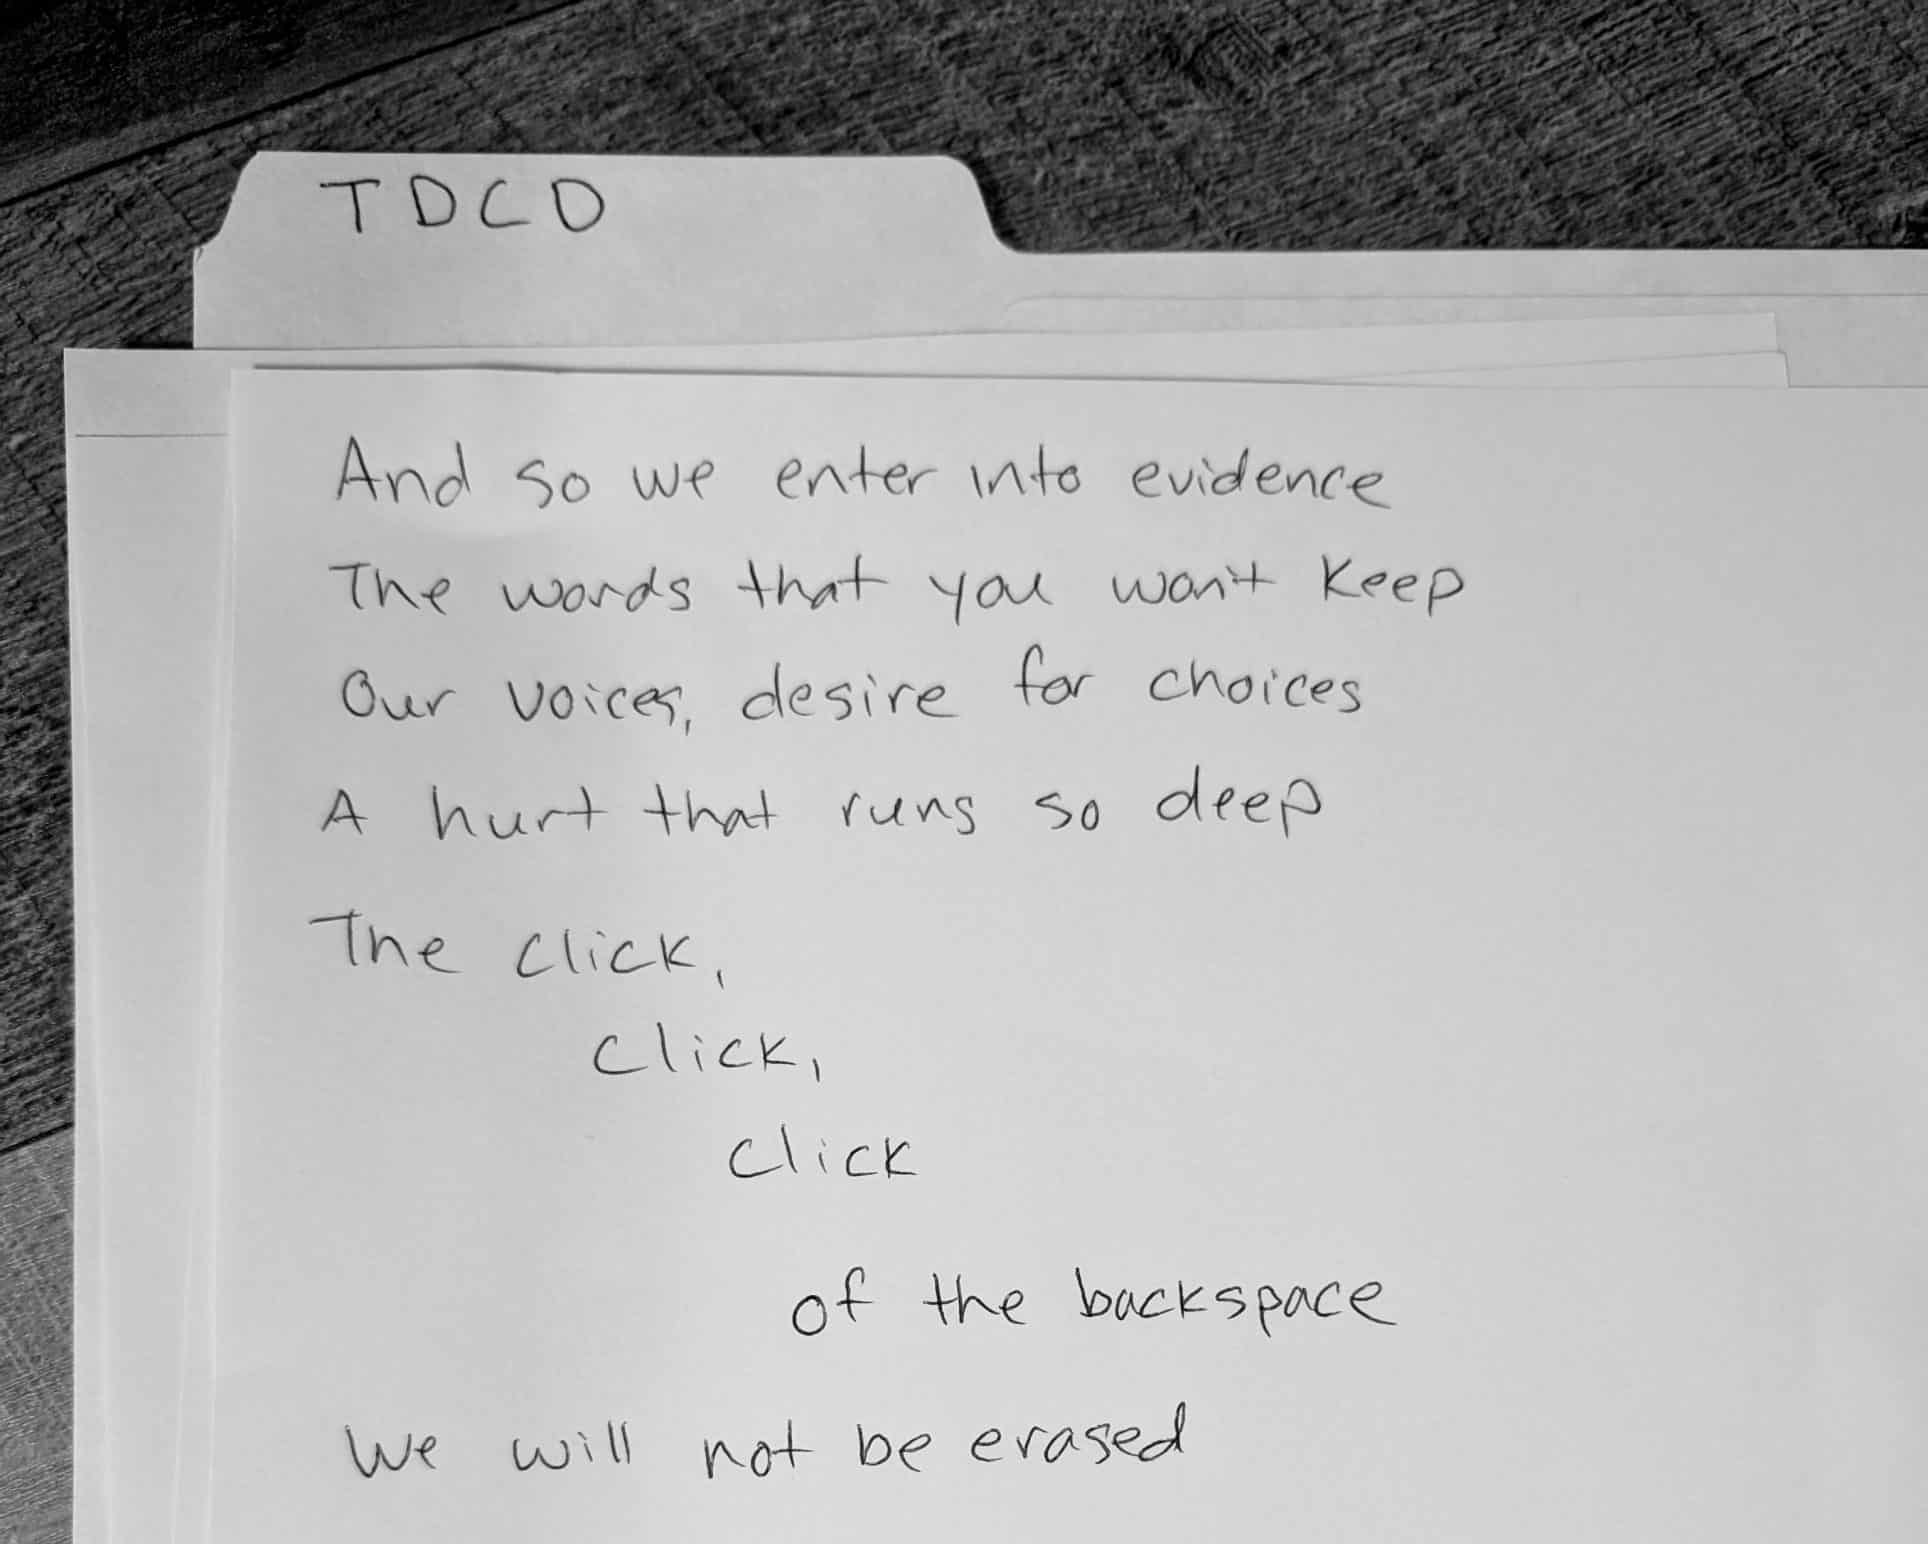 TDCD
And so we enter into evidence
The words that you won't keep
Our voices, desire for choices
A hurt that runs so deep
The click,
click,
click
of the backspace
We will not be erased